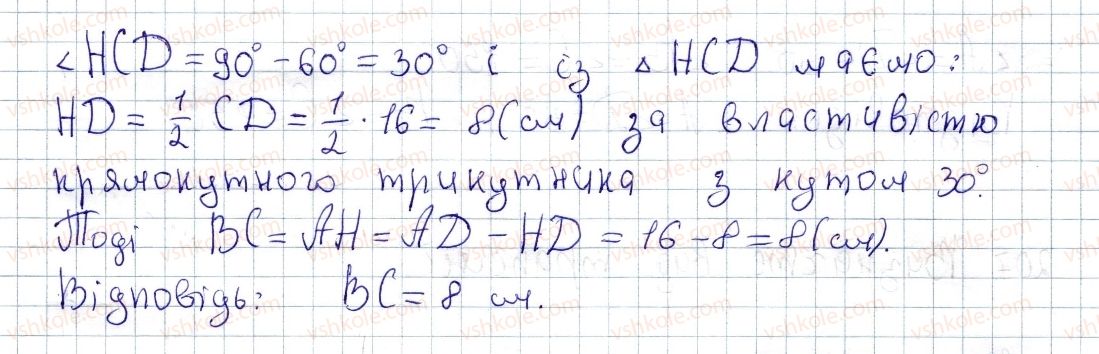 ∠HCD = 90° - 60° = 30° і із △ HCD маємо:
HD = 1/2 CD = 1/2 · 16 = 8 (см) за властивістю
прямокутного трикутника з кутом 30°.
Тоді BC = AH = AD - HD = 16 - 8 = 8 (см).
Відповідь: BC = 8 см.